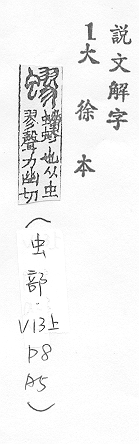 說文解字
1大徐本
蟉
也从虫
翏聲力幽切
（虫部．
V13上
P8
A5）